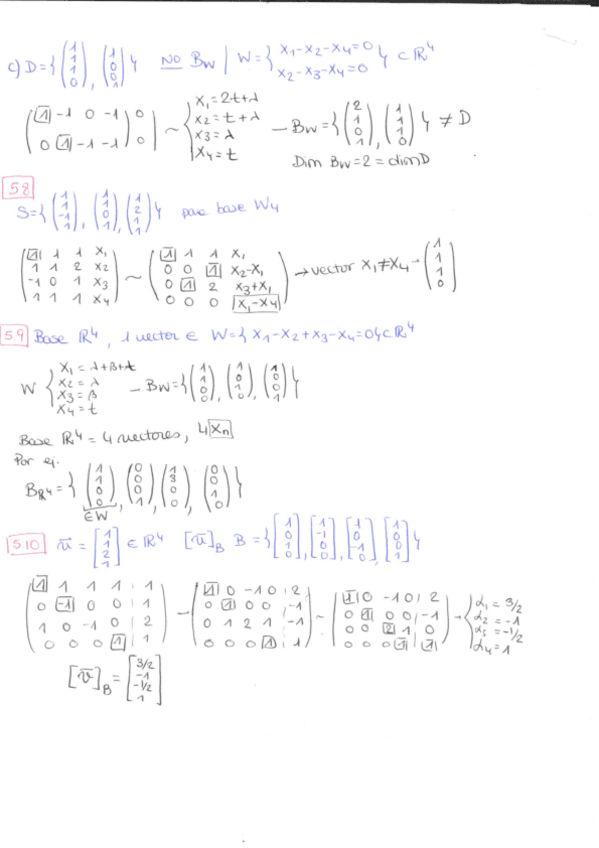 c) D = { (1 1 1 0), (1 0 0 1) } NO B_W | W = { x1 - x2 - x4 = 0, x2 - x3 - x4 = 0 } ⊂ ℝ^4
( 1 -1 0 -1 | 0 ; 0 1 -1 -1 | 0 ) ~ { x1 = 2t+λ, x2 = t+λ, x3 = λ, x4 = t — B_W = { (2 1 0 1), (1 1 1 0) } ≠ D
Dim B_W = 2 = dim D
5.8
S = { (1 1 -1 1), (1 1 0 1), (1 2 1 1) } para base W4
( 1 1 1 x1 ; 1 1 2 x2 ; -1 0 1 x3 ; 1 1 1 x4 ) ~ ( 1 1 1 x1 ; 0 0 1 x2-x1 ; 0 1 2 x3+x1 ; 0 0 0 x1-x4 ) → vector x1 ≠ x4 - (1 1 1 0)
5.9 Base ℝ^4, 1 vector ∈ W = { x1 - x2 + x3 - x4 = 0 } ⊂ ℝ^4
W { x1 = λ+β+t, x2 = λ, x3 = β, x4 = t — B_W = { (1 1 0 0), (1 0 1 0), (1 0 0 1) }
Base ℝ^4 = 4 vectores, 4 xn
Por ej.
B_ℝ^4 = { (1 1 0 0), (0 0 0 1), (1 3 0 0), (0 0 1 0) }
∈ W
5.10 ū = [1 1 2 1] ∈ ℝ^4 [ū]_B B = { [1 0 1 0], [1 -1 0 0], [1 0 -1 0], [1 0 0 1] }
( 1 1 1 1 | 1 ; 0 -1 0 0 | 1 ; 1 0 -1 0 | 2 ; 0 0 0 1 | 1 ) — ( 1 0 -1 0 | 2 ; 0 1 0 0 | -1 ; 0 1 2 1 | -1 ; 0 0 0 1 | 1 ) ~ ( 1 0 -1 0 | 2 ; 0 1 0 0 | -1 ; 0 0 2 1 | 0 ; 0 0 0 1 | 1 ) - { α1 = 3/2, α2 = -1, α3 = -1/2, α4 = 1
[v̄]_B = [3/2 -1 -1/2 1]